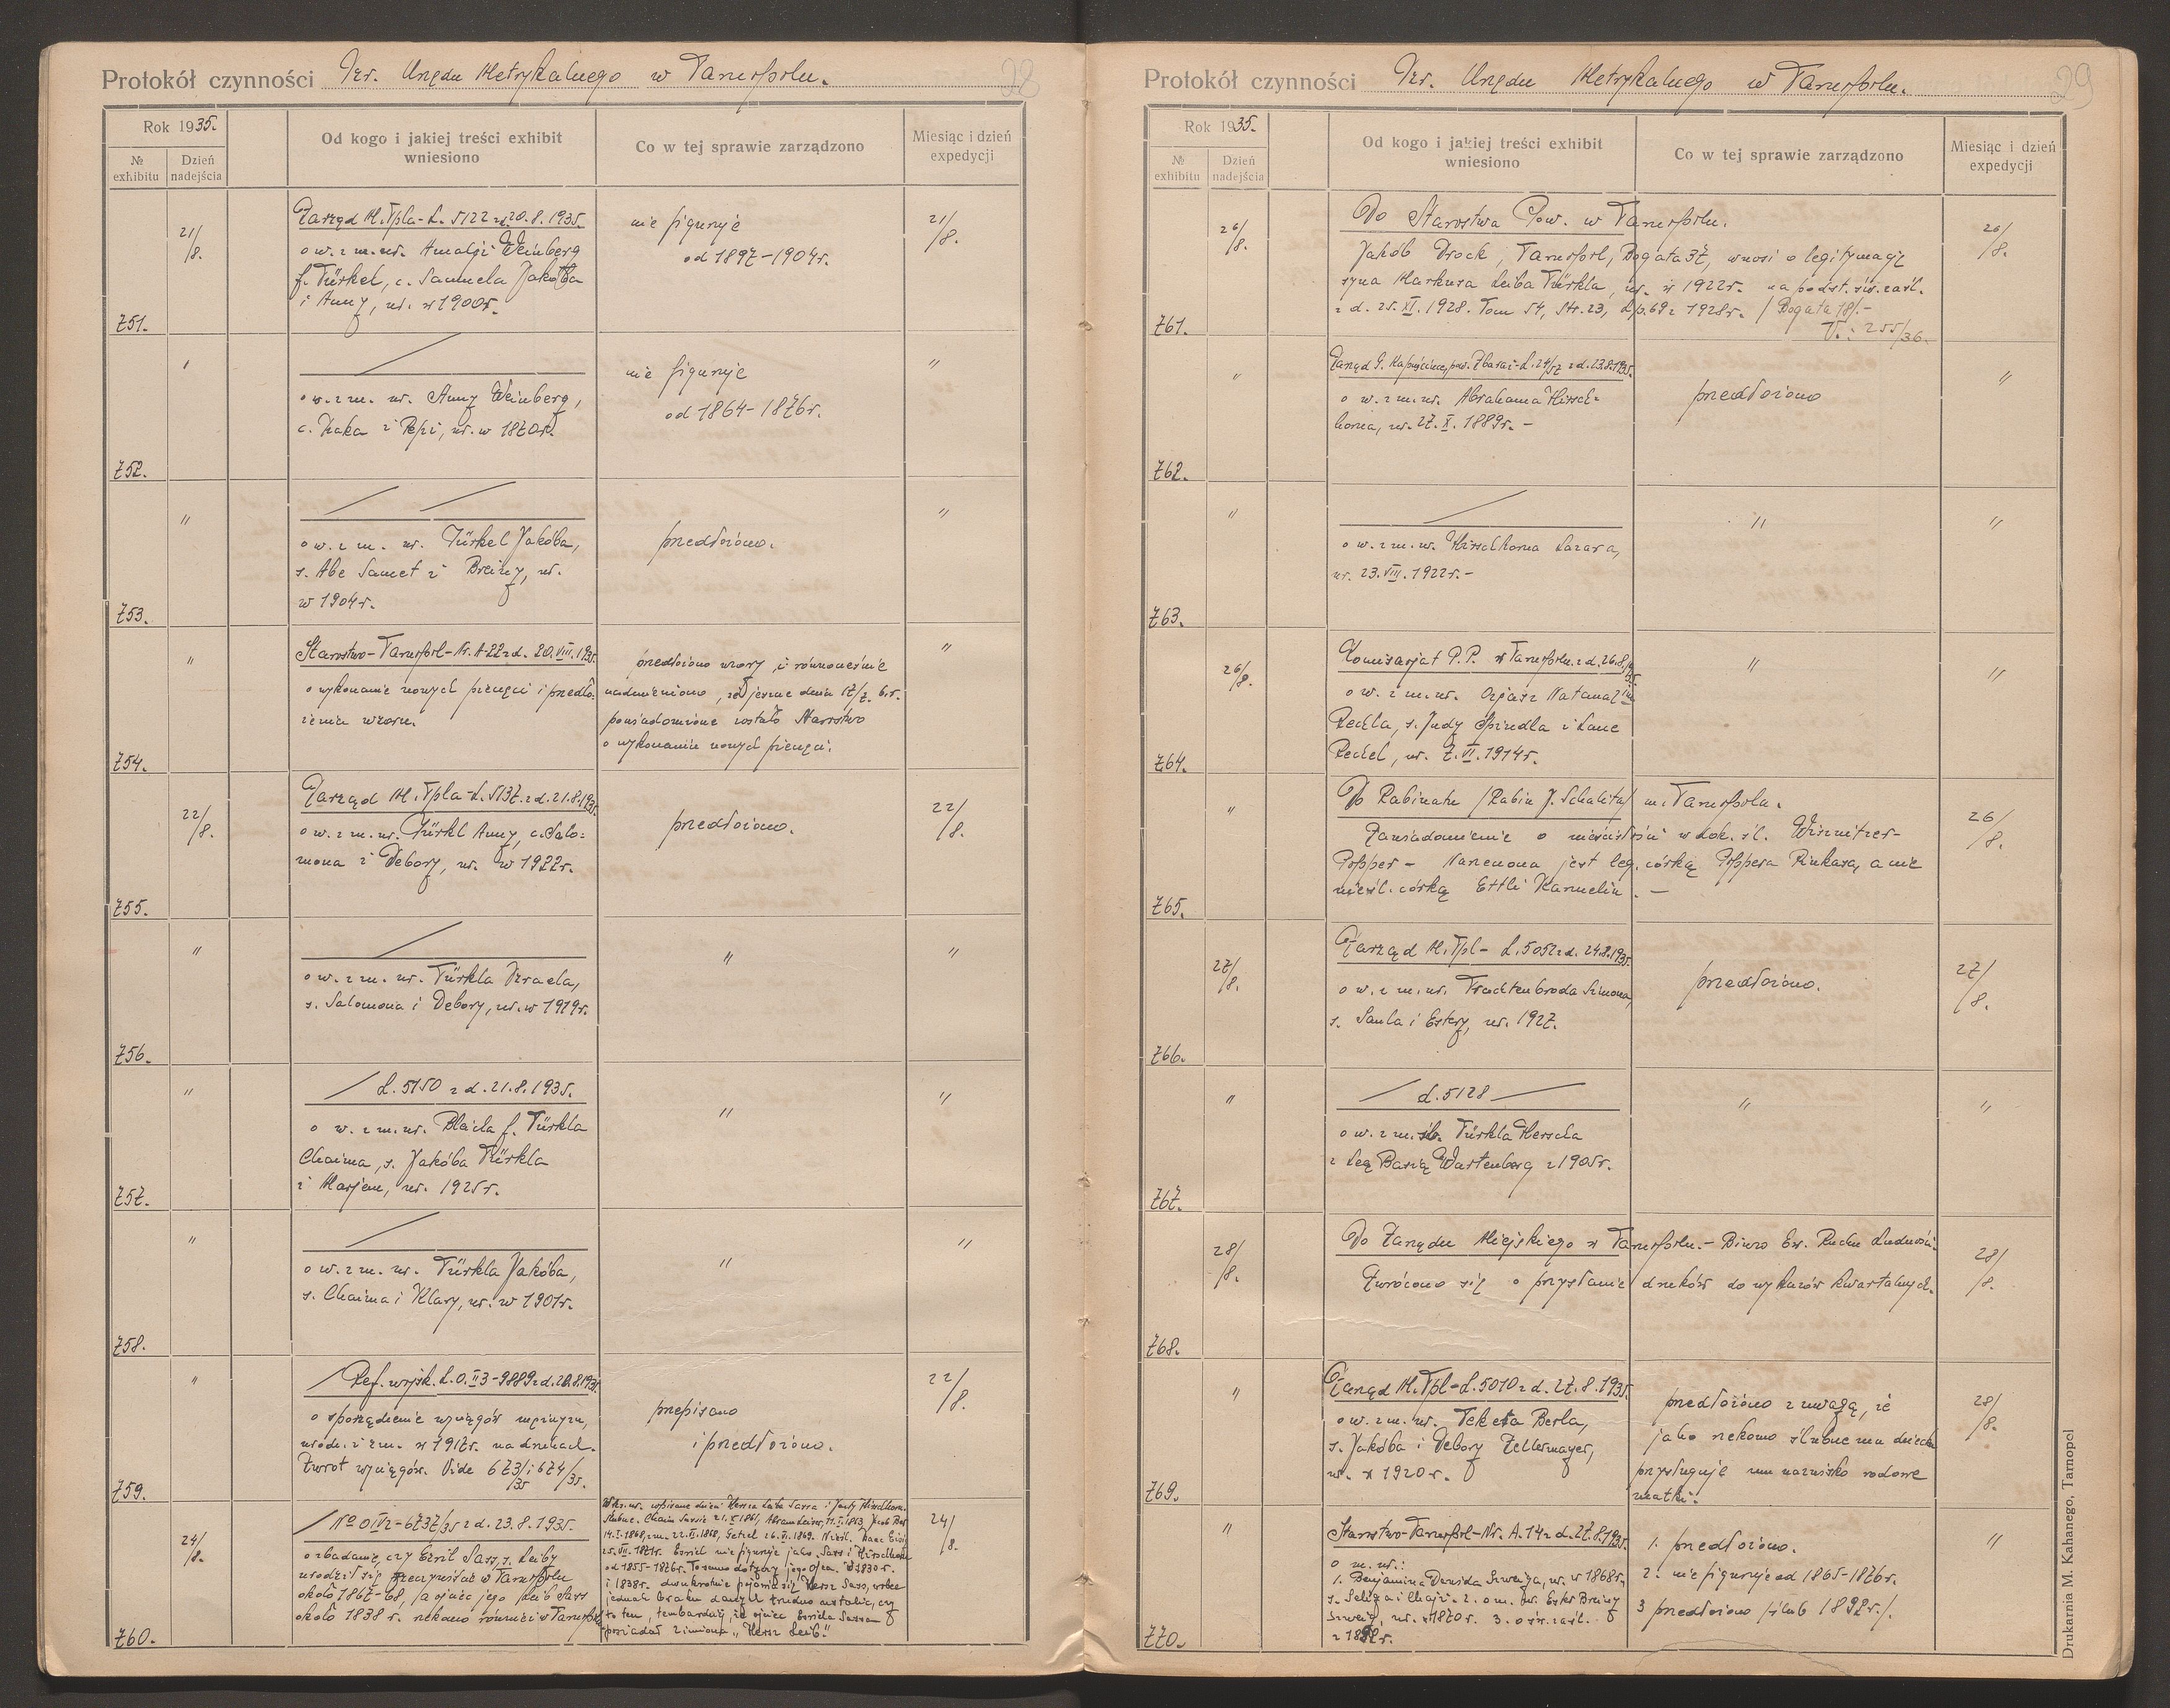 Protokół czynności Izr. Urzędu Metrykalnego w Tarnopolu.
28
Rok 1935.
№ exhibitu
Dzień nadejścia
Od kogo i jakiej treści exhibit wniesiono
Co w tej sprawie zarządzono
Miesiąc i dzień expedycji
751.
21/8.
Zarząd M. Tpla-L. 5122 z 20.8.1935.
o w. z m. ur. Amalji Weinberg
f. Türkel, c. Samuela Jakóba
i Anny, ur. w 1900r.
nie figuruje
od 1897-1904r.
21/8.
752.
"
o w. z m. ur. Anny Weinberg,
c. Izaka i Pepi, ur. w 1870r.
nie figuruje
od 1864-1876r.
"
753.
"
o w. z m. ur. Türkel Jakóba,
s. Abe Samet i Breiny, ur.
w 1904r.
przedłożono.
"
754.
"
Starostwo-Tarnopol-Nr. A-22 z d. 20.VIII.1935.
o wykonanie nowych pieczęci i przedło-
żenia wzoru.
przedłożono wzory, i równocześnie
nadmieniono, że jeszcze dnia 17/7. b.r.
powiadomione zostało Starostwo
o wykonaniu nowych pieczęci.
"
755.
22/8.
Zarząd M. Tpla-L. 5137. z d. 21.8.1935.
o w. z m. ur. Türkl Anny, c. Salo-
mona i Debory, ur. w 1922r.
przedłożono.
22/8.
756.
"
o w. z m. ur. Türkla Izraela,
s. Salomona i Debory, ur. w 1919r.
"
"
757.
"
L. 5150 z d. 21.8.1935.
o w. z m. ur. Blaida f. Türkla
Chaima, s. Jakóba Türkla
i Marjem, ur. 1925r.
"
"
758.
"
o w. z m. ur. Türkla Jakóba,
s. Chaima i Klary, ur. w 1901r.
"
"
759.
"
Ref. wojsk. L. O. II 3-9889 z d. 20.8.1935.
o sporządzenie wyciągów mężczyzn,
urodz. i zm. w 1917r. na drukach.
Zwrot wyciągów. Vide 673/35 i 674/35.
przepisano
i przedłożono.
22/8.
760.
24/8.
No O IV 2-6737/35 z d. 23.8.1935.
o zbadanie, czy Esriel Sass, s. Leiby
urodził się rzeczywiście w Tarnopolu
około 1867-68, a ojciec jego Leib Sass
około 1838 r. rzekomo również w Tarnopolu.
W ks. ur. wpisane dzieci Hersza Leiba Sassa i Jenty Hirschhorn.
Ślubne. Chaim Sussie 21.V.1861, Abram Leiser, 11.I.1863, Jacob Ber
14.I.1868, zm. 22.II.1868, Getzel 26.VI.1869. Nieśl.
25.VII.1871r. Esriel nie figuruje jako Sass i Hirschhorn
od 1855-1876r. To samo dotyczy jego ojca. W 1830r.
i 1838r. dwukrotnie pojawia się Hersz Sass, wobec
jednak braku danych trudno ustalić, czy
to ten, tembardziej, że ojciec Esriela Sassa
posiadał 2 imiona „Hersz Leib".
24/8.
Protokół czynności Izr. Urzędu Metrykalnego w Tarnopolu.
29
Rok 1935.
№ exhibitu
Dzień nadejścia
Od kogo i jakiej treści exhibit wniesiono
Co w tej sprawie zarządzono
Miesiąc i dzień expedycji
761.
26/8.
Do Starostwa Pow. w Tarnopolu.
Jakób Drock, Tarnopol, Bogata 37, wnosi o legitymację
syna Markusa Leiba Türkla, ur. w 1922r. na podst. św. zaśl.
z d. 25.XI.1928. Tom 54, Str. 23, Lp. 69 z 1928r. /Bogata 18/.-
V.: 255/36.
26/8.
762.
"
Zarząd G. Kapuścińce, pow. Zbaraż-L. 24/57 z d. 23.8.1935.
o w. z m. ur. Abrahama Hirsch-
horna, ur. 27.X.1889r.-
przedłożono
"
763.
"
o w. z m. ur. Hirschhorna Lazara,
ur. 23.VIII.1922r.-
"
"
764.
26/8.
Komisarjat P.P. w Tarnopolu z d. 26.8.1935.
o w. z m. ur. Ozjasz Natana 2 im
Rechla, s. Judy Spindla i Lane
Rechel, ur. 7.VI.1914r.
"
"
765.
"
Do Rabinatu /Rabin J. Schalita/ m. Tarnopola.
Zawiadomienie o nieścisłości w dok. śl. Wiznitzer-
Popper- Narzeczona jest leg. córką Poppera Pinkasa, a nie
nieśl. córką Ettli Karmelin.-
26/8.
766.
27/8.
Zarząd M. Tpl- L. 5052 z d. 24.8.1935.
o w. z m. ur. Trachtenbroda Simona,
s. Saula i Estery, ur. 1927.
przedłożono.
27/8.
767.
"
L. 5128
o w. z m. śb. Türkla Herscha
z Leą Basią Wartenberg z 1905r.
"
"
768.
28/8.
Do Zarządu Miejskiego w Tarnopolu.- Biuro Ew. Ruchu Ludności.
Zwrócono się o przysłanie druków do wykazów kwartalnych.
28/8.
769.
"
Zarząd M. Tpl-L. 5010 z d. 27.8.1935.
o w. z m. ur. Tekela Berla,
s. Jakóba i Debory Zellermayer,
ur. w 1920r.
przedłożono z uwagą, że
jako rzekomo ślubnemu dziecku
przysługuje mu nazwisko rodowe
matki.
28/8.
770.
"
Starostwo-Tarnopol-Nr. A. 14 z d. 27.8.1935.
o m. ur.:
1. Benjamina Dawida Szweiga, ur. w 1868r.,
s. Seliga i Chaji. 2. o m. ur. Ester Breiny
Szweig, ur. w 1870r. 3. o św. zaśl.
z 1892r.
1. przedłożono.
2. nie figuruje od 1865-1876r.
3 przedłożono /ślub 1892r./.
"
Drukarnia M. Kahanego, Tarnopol